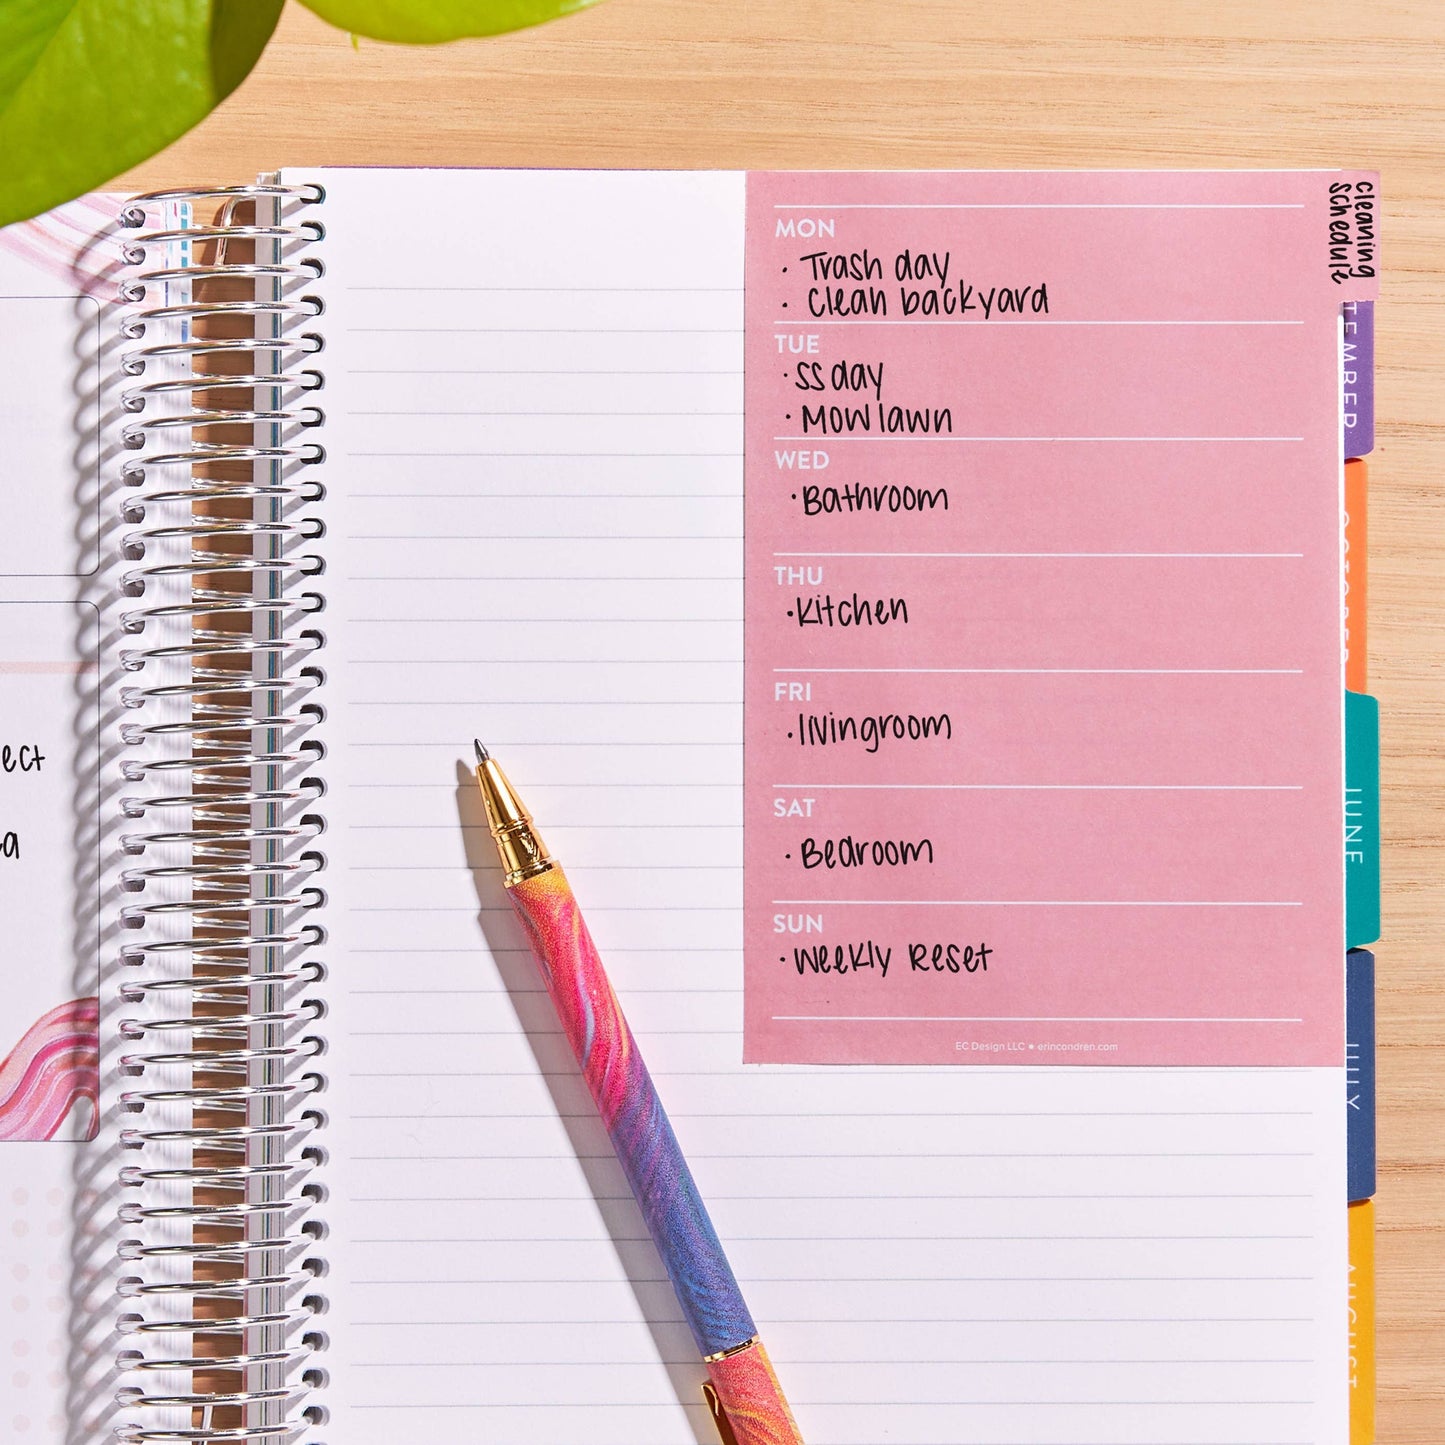 cleaning
schedule
MON
· Trash day
· Clean backyard
TUE
· SS day
· Mow lawn
WED
· Bathroom
THU
· Kitchen
FRI
· livingroom
SAT
· Bedroom
SUN
· Weekly Reset
EC Design LLC ● erincondren.com
TEMBER
OCTOBER
JUNE
JULY
AUGUST
ect
a